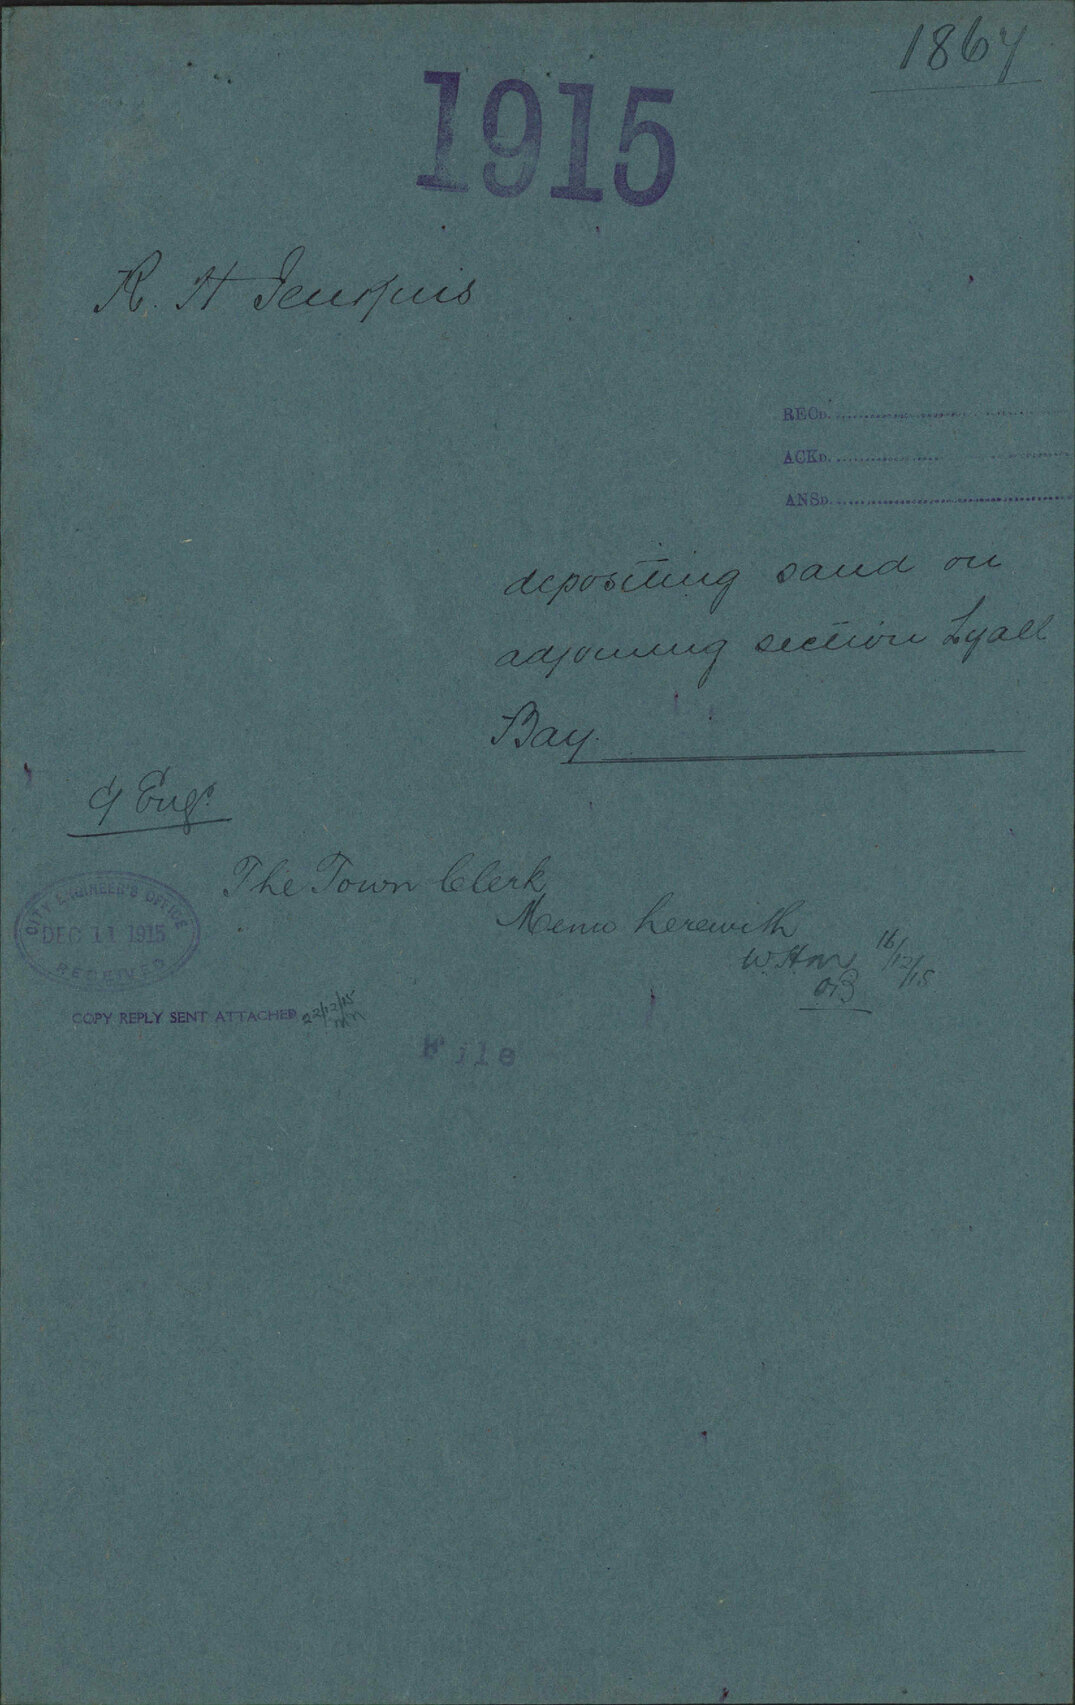 1867
1915
R. H Jenkins
RECD.
ACKD.
ANSD.
depositing sand on
adjoining section Lyall
Bay.
Cy Engr
The Town Clerk
Memo herewith
16/12/15
CITY ENGINEER'S OFFICE
DEC 11 1915
RECEIVED
COPY REPLY SENT ATTACHED 22/12/15
File